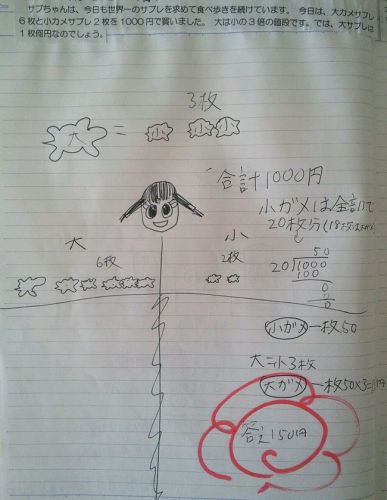 サブちゃんは、今日も世界一のサブレを求めて食べ歩きを続けています。 今日は、大カメサブレ
6枚と小カメサブレ2枚を1000円で買いました。 大は小の3倍の値段です。では、大サブレは
1枚何円なのでしょう。
3枚
大 = 小 小 小
合計1000円
小ガメは全部で
20枚分
大
6枚
小
2枚
50
20 1000
100
0
0
0
小ガメ 一枚50
大=小3枚
大ガメ 一枚50×3=
答え150円